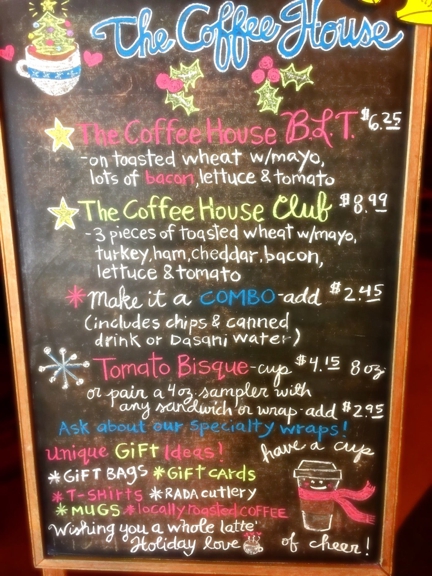 The Coffee House
The Coffee House B.L.T. $6.25
-on toasted wheat w/mayo,
lots of bacon, lettuce & tomato
The Coffee House Club $8.99
-3 pieces of toasted wheat w/mayo,
turkey, ham, cheddar, bacon,
lettuce & tomato
* make it a COMBO-add $2.45
(includes chips & canned
drink or Dasani water)
Tomato Bisque-cup $4.15 8oz
or pair a 4oz. sampler with
any sandwich or wrap-add $2.95
Ask about our specialty wraps!
Unique Gift Ideas!
*GIFT BAGS *GIFT CARDS
*T-SHIRTS *RADA cutlery
*MUGS *locally roasted COFFEE
Wishing you a whole latte'
Holiday love
have a cup
of cheer!